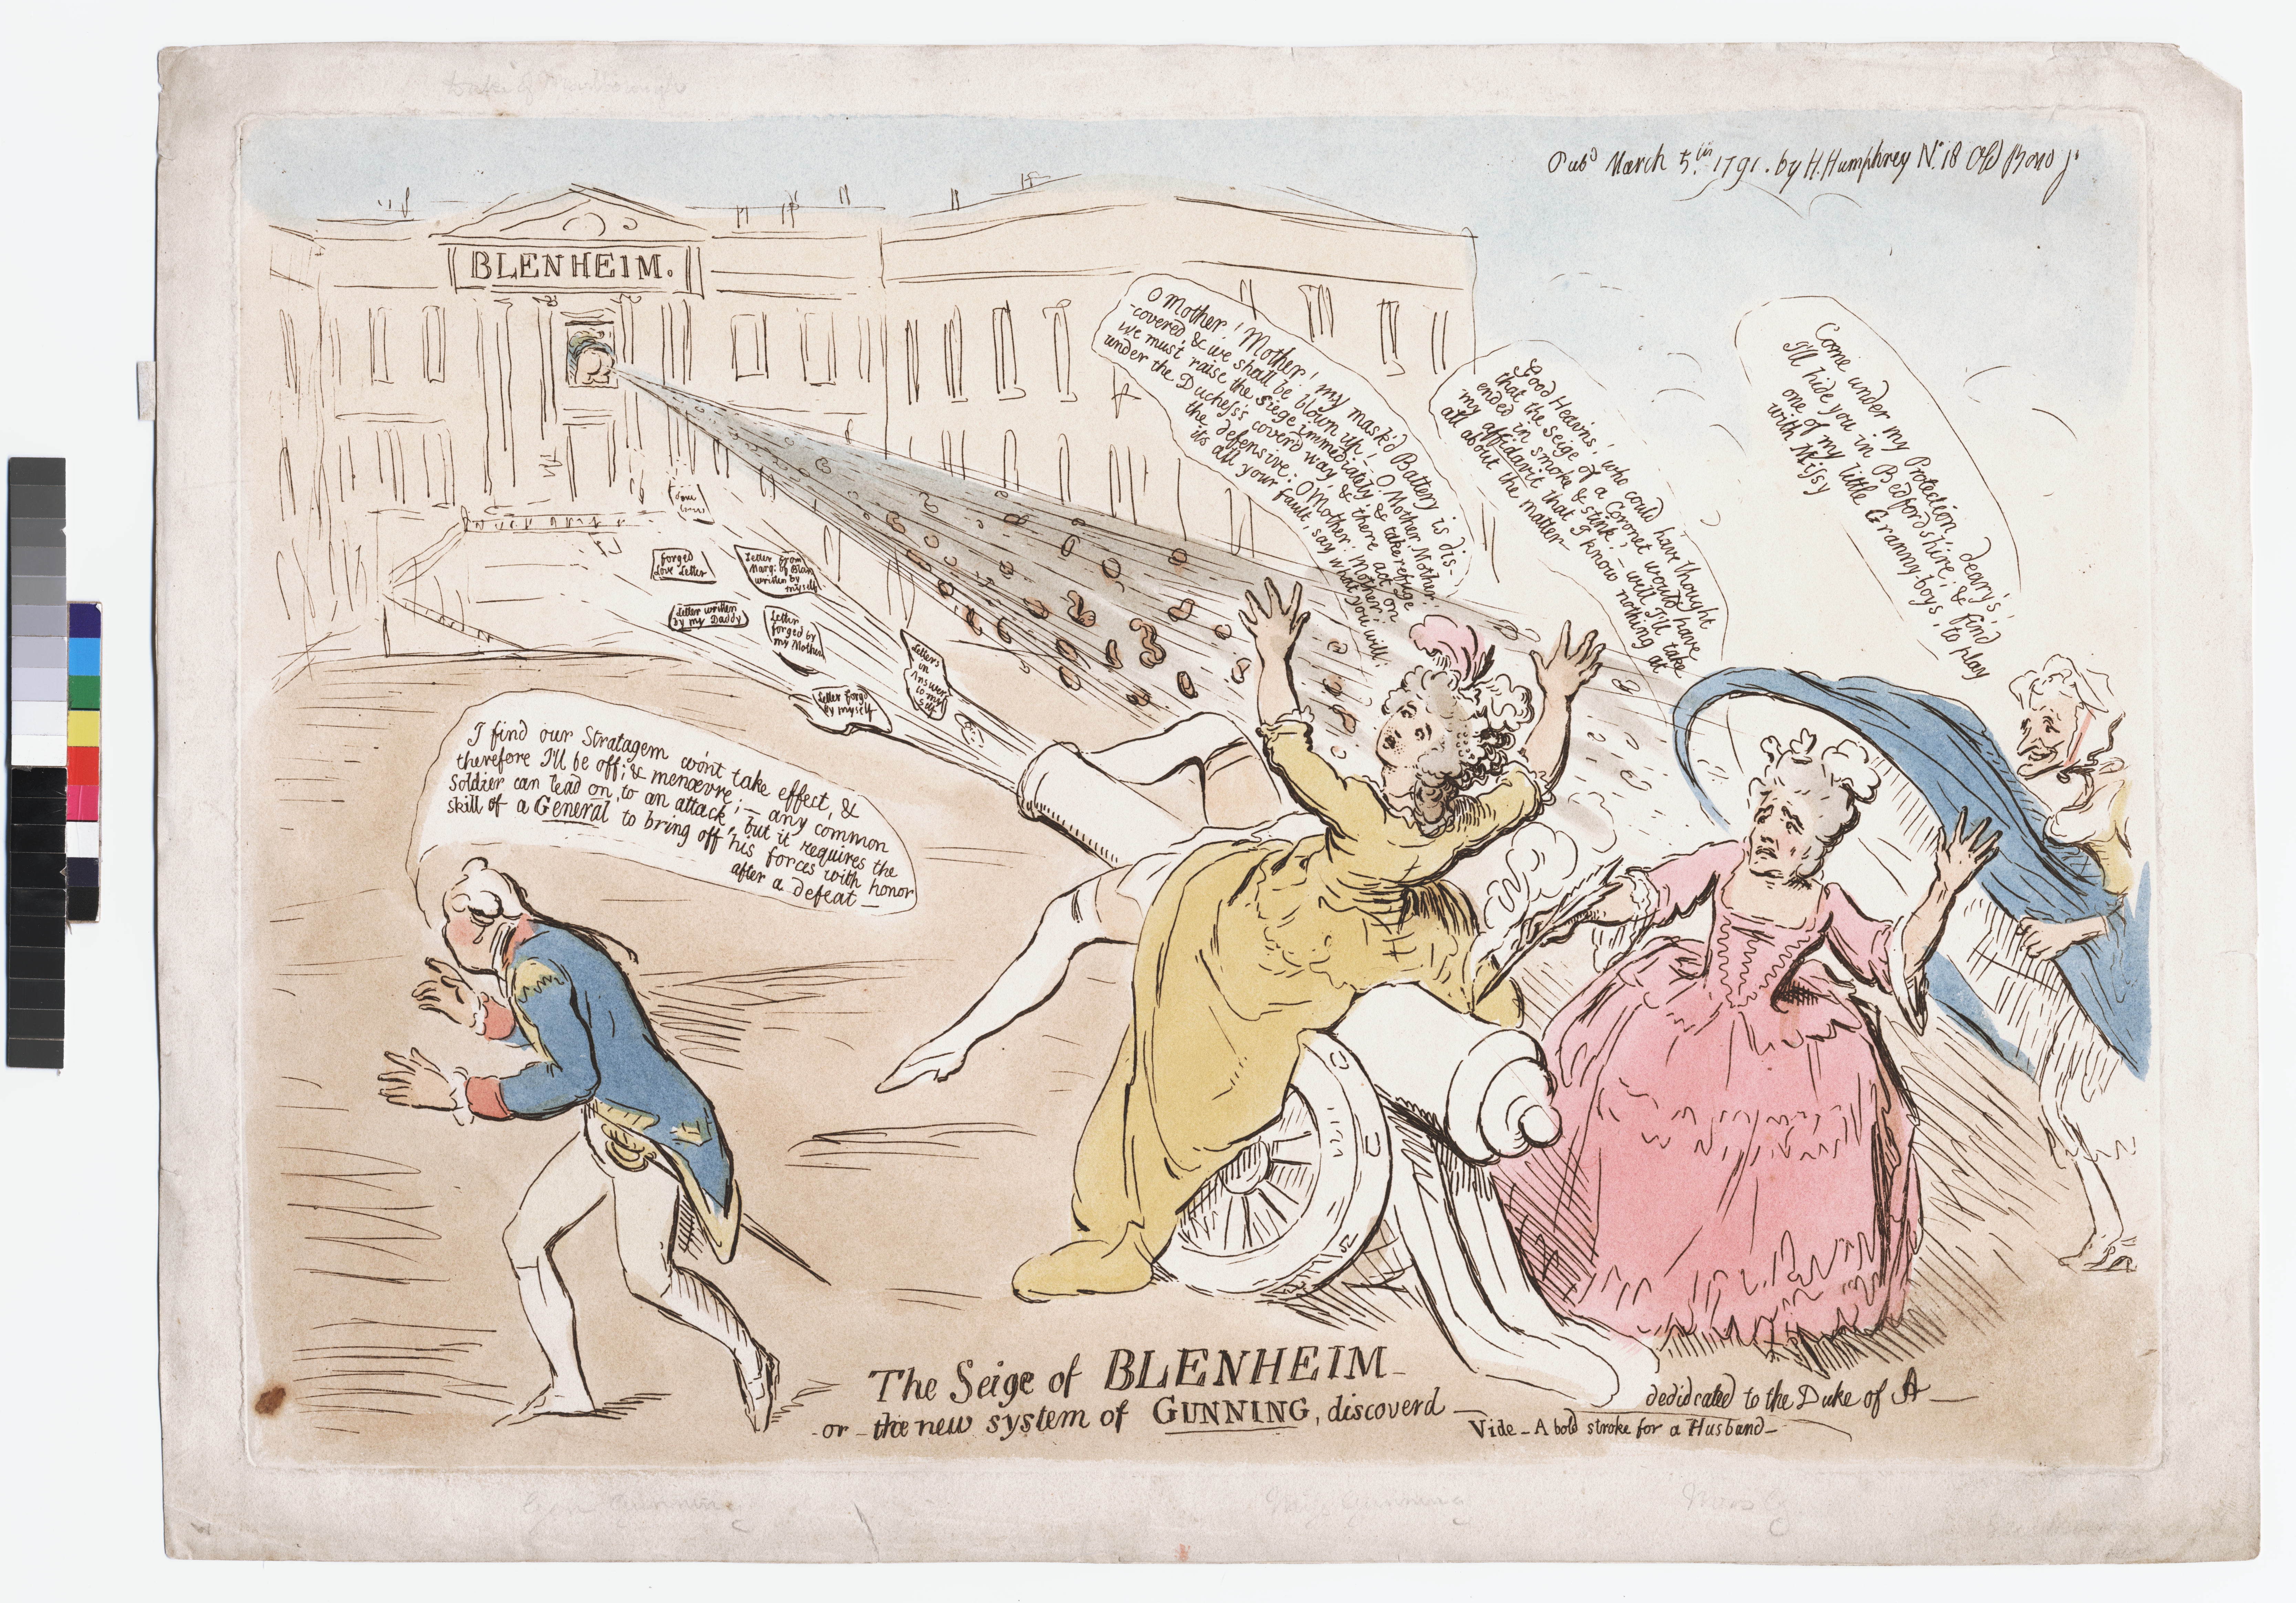 Pubd March 5th 1791. by H. Humphrey No. 18 Old Bond St
BLENHEIM.
O Mother! Mother! my mask'd Battery is dis-
-covered, & we shall be blown up! - O Mother, Mother,
we must raise the siege immediately, & take refuge
under the Duchess's cover'd way, & there act on
the defensive: O Mother: Mother:
its all your fault, say what you will:
Good Heavns! who could have thought
that the seige of a Coronet would have
ended in smoke & stink! - well I'll take
my affidavit that I know nothing at
all about the matter
Come under my Protection, deary's!
I'll hide you in Bedfordshire; & find
one of my little Granny-boys, to play
with Missy
forged
Love Letter
Letter from
Marq: of Blan
written by
myself
Letter written
by my Daddy
Letter
forged by
my Mother
Letters
in
Answer
to my
self
Letter forg'd
by myself
I find our Stratagem won't take effect, &
therefore I'll be off, & menœvre; - any common
Soldier can lead on, to an attack, but it requires the
skill of a General to bring off his forces with honor
after a defeat -
The Seige of BLENHEIM -
- or - the new system of GUNNING, discoverd -
dedidcated to the Duke of A -
Vide - A bold stroke for a Husband -
Gen Gunning
Miss Gunning